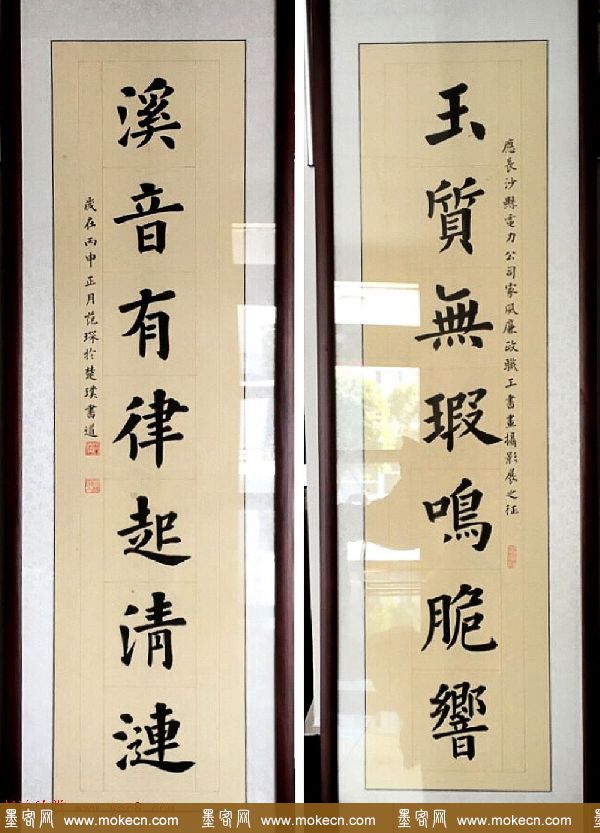 玉質無瑕鳴脆響
應長沙縣電力公司家風廉政職工書畫攝影展之征
溪音有律起清漣
歲在丙申正月範琛於楚璞書道
墨密网 www.mokecn.com 墨密网 www.mokecn.com 墨密网 www.mokecn.com